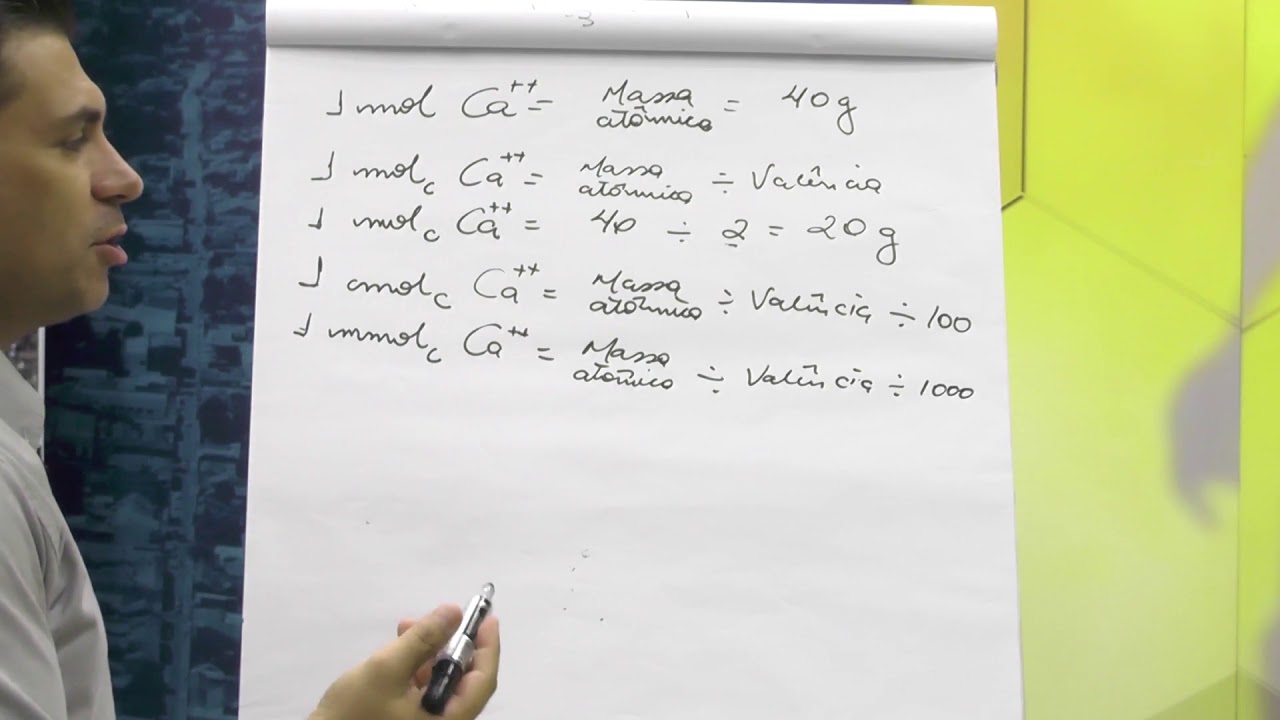 1 mol Ca++ = Massa atômica = 40g
1 molc Ca++ = Massa atômica ÷ Valência
1 molc Ca++ = 40 ÷ 2 = 20g
1 cmolc Ca++ = Massa atômica ÷ Valência ÷ 100
1 mmolc Ca++ = Massa atômica ÷ Valência ÷ 1000